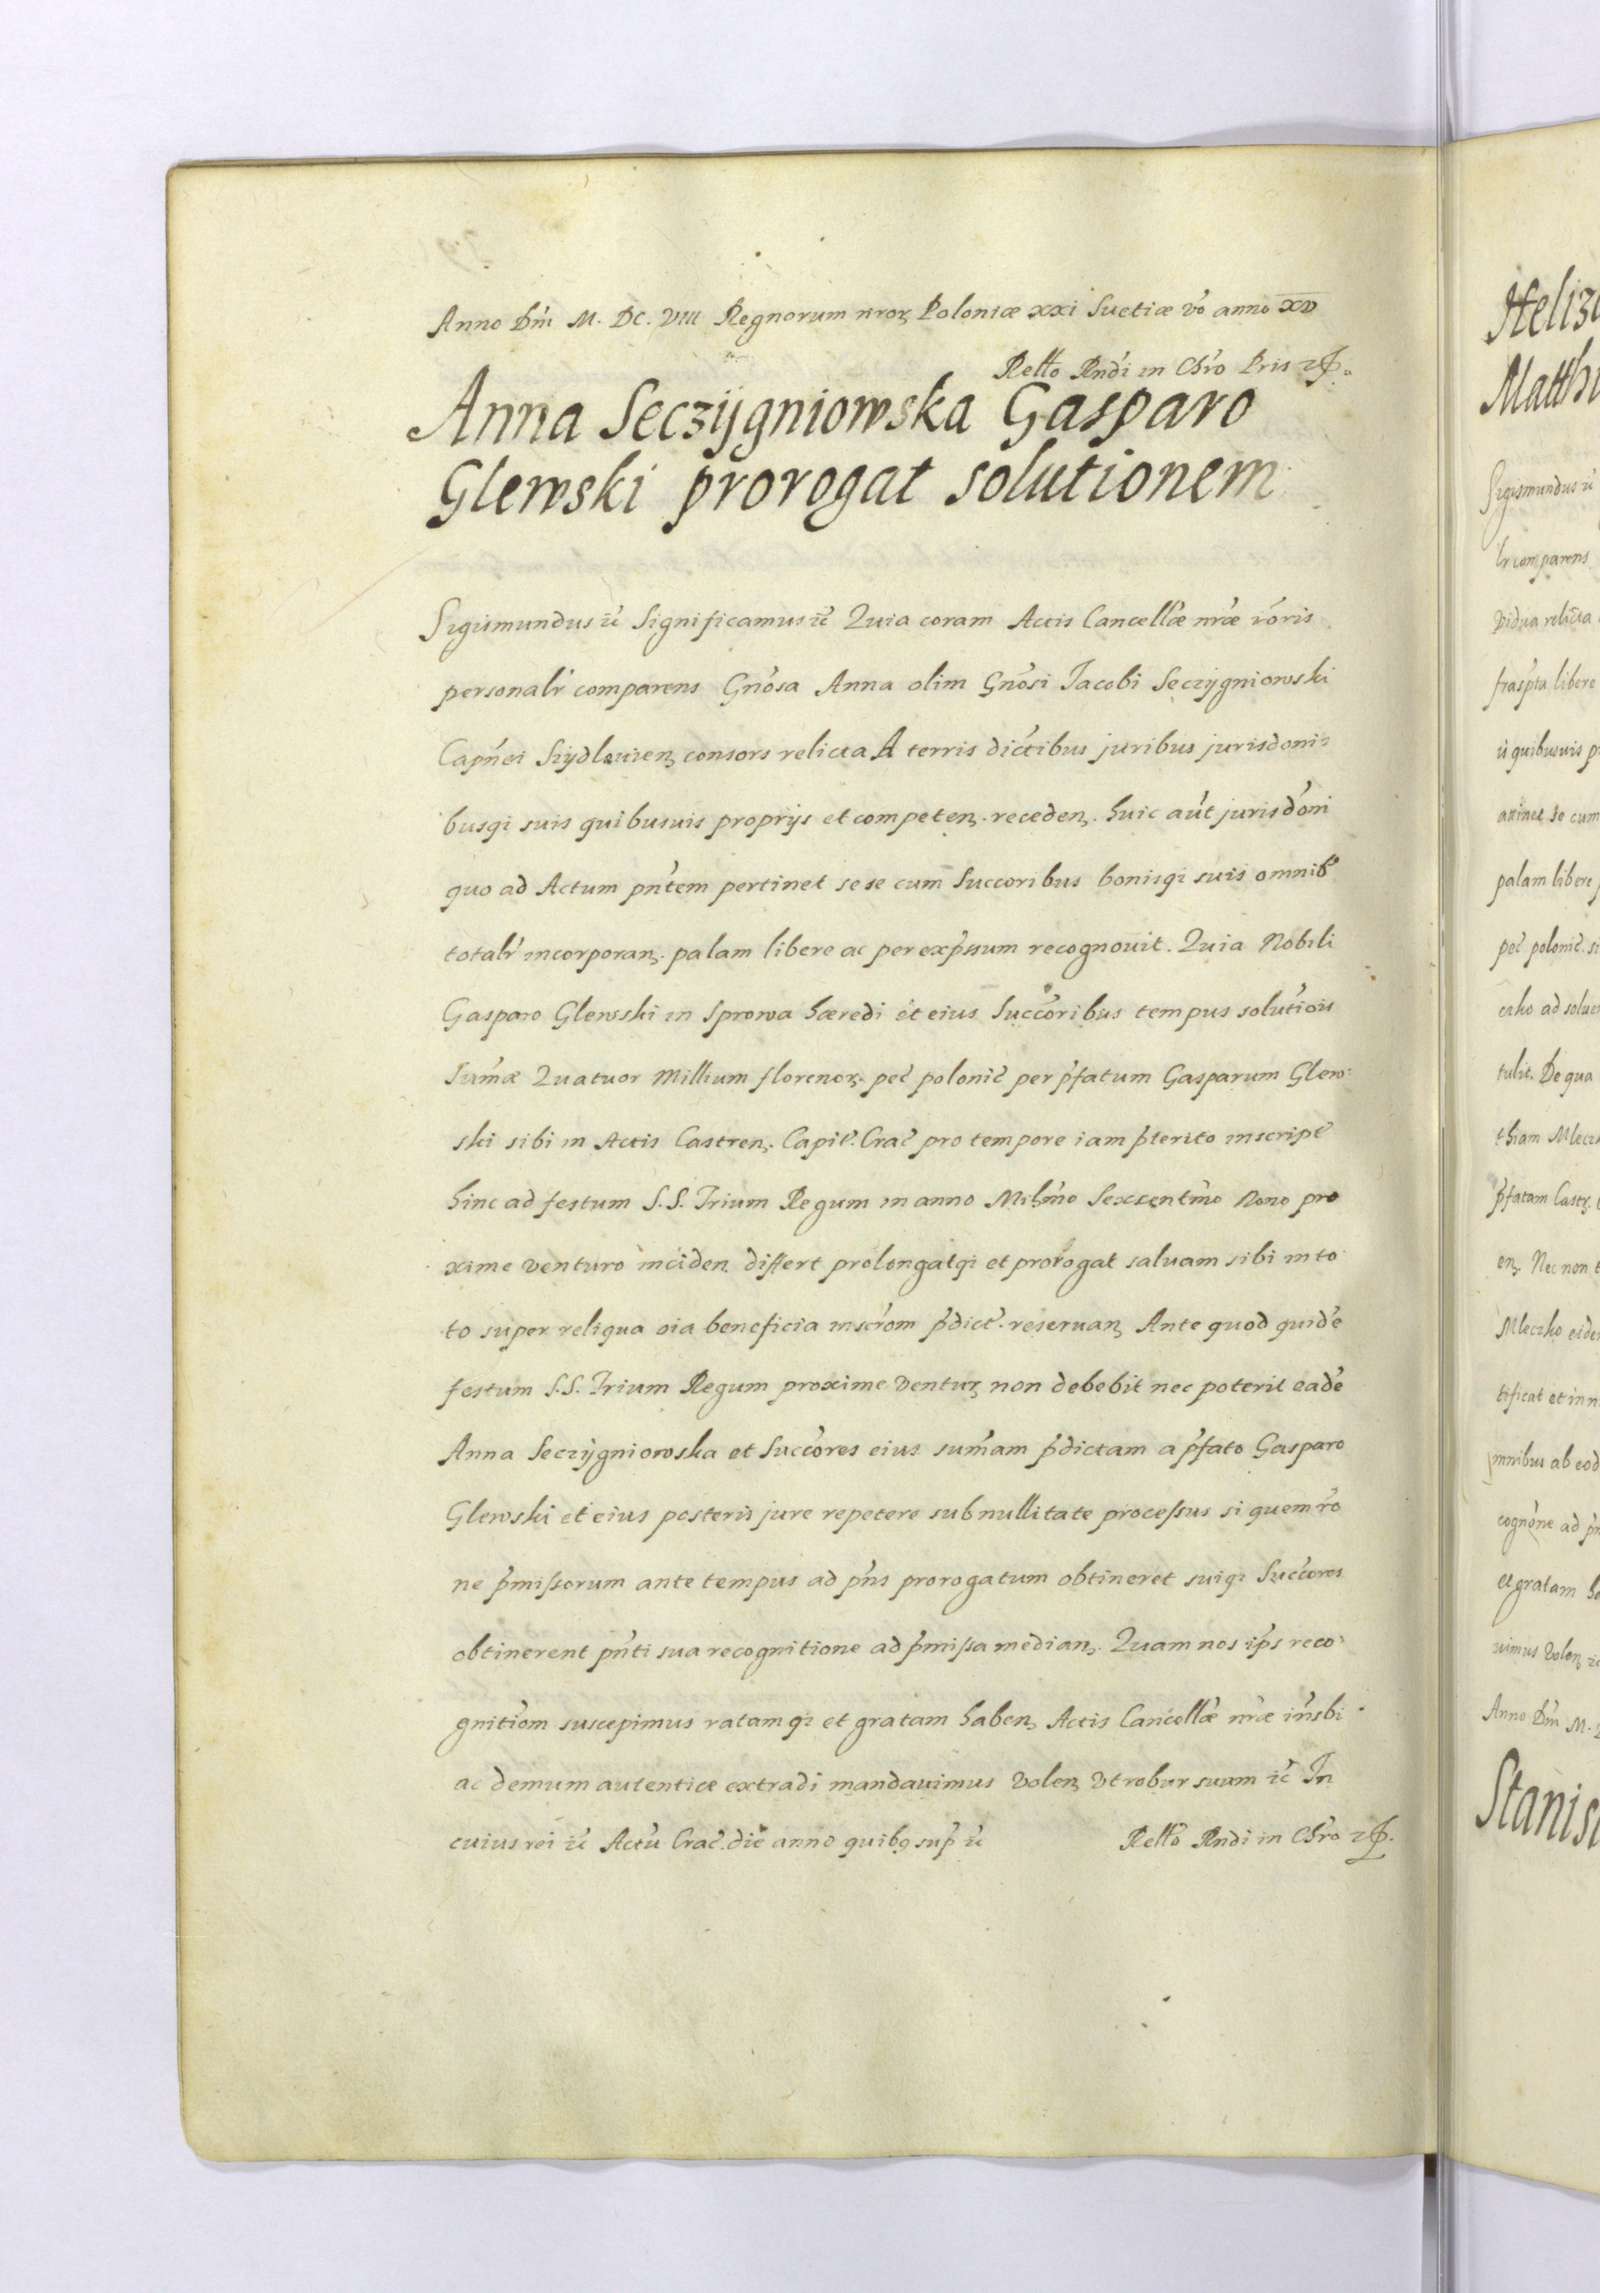 Anno Dni M. DC. VIII Regnorum nroꝝ Poloniæ xxi Suetiæ vo anno xv
Rello Rndi in Chro Pris
Anna Seczÿgniowska Gasparo
Glewski prorogat solutionem
Sigismundus ec Significamus ec Quia coram Actis Cancellæ nræ
personalr comparens Gnosa Anna olim Gnosi Jacobi Seczygniowski
Capnei consors relicta A terris dictibus juribus jurisdoni-
busqз suis quibusuis proprijs et competenꝫ. recedenꝫ. huic aut jurisdoni
quo ad Actum pntem pertinet sese cum Succoribus bonisqз suis omnib
totalr incorporanꝫ. palam libere ac per expssum recognouit. Quia Nobili
Gasparo Glewski in Sprowa hæredi et eius Succoribus tempus solutiois
Sumæ Quatuor Millium florenoꝝ. pec polonic per pfatum Gasparum Glew-
ski sibi in Actis Castrenꝫ. Capit. Crac pro tempore iam pterito inscript
hinc ad festum S.S. Trium Regum in anno Mill̃mo Sexcentmo Nono pro
xime venturo inciden differt prolongatqз et prorogat saluam sibi in to
to super reliqua oia beneficia inscrom pdict. reseruanꝫ Ante quod quide
festum S.S. Trium Regum proxime venturꝫ non debebit nec poterit eade
Anna Seczÿgniowska et Succores eius sumam pdictam a pfato Gasparo
Glewski et eius posteris jure repetere sub nullitate processus si quem ro
ne pmissorum ante tempus ad pns prorogatum obtineret suiqз Succores
obtinerent pnti sua recognitione ad pmissa medianꝫ. Quam nos ips reco-
gnitiom suscepimus ratamqз et gratam habenꝫ Actis Cancellæ nræ insbi
ac demum autentice extradi mandauimus volenꝫ vt robur suum ec In
cuius rei ec Actu Crac. die anno quibꝯ sup ec
Rello Rndi in Chro
Matth
Sigismundus ec
comparens
vidua relicta
libere
quibusuis
attinet se cum
palam libere
pec polonic.
ad
tulit. De qua
pfatam
Nec non
Mleczko
tificat et in
omnibus ab eod
cognone ad
et gratam
uimus volenꝫ
Anno Dni M.
Stanis